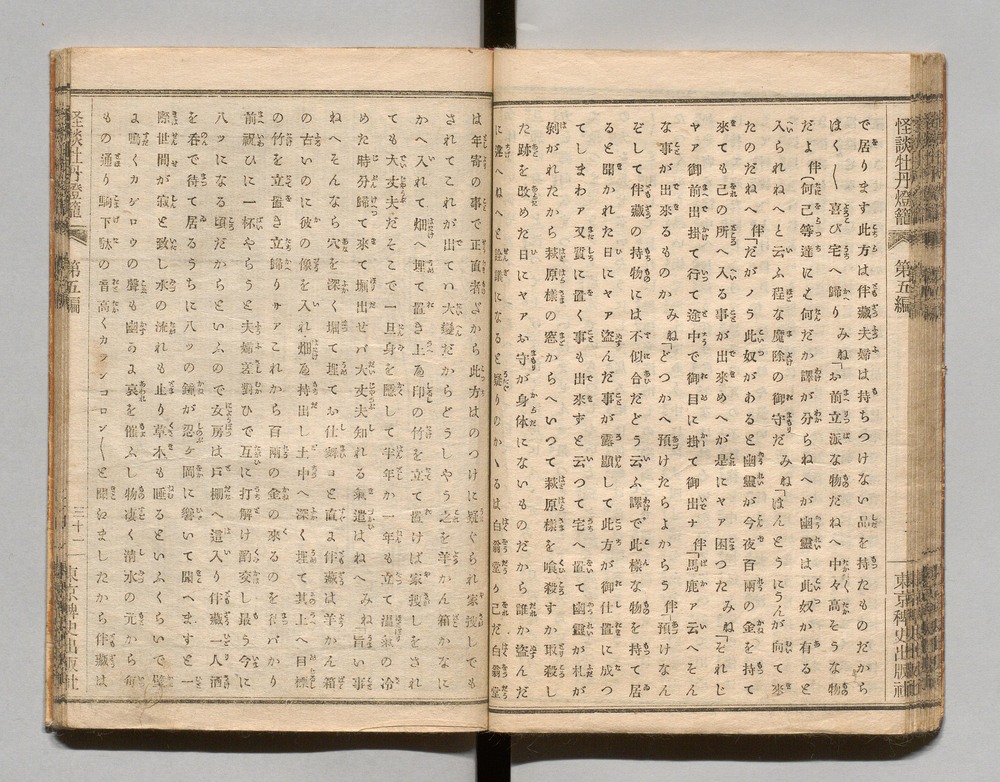 怪談牡丹燈籠 第五編 東京稗史出版社
で居ります此方は伴藏夫婦は持ちつけない品を持たものだから
ほく〱喜び宅へ歸りみね「お前立派な物だねへ中々高そうな物
だよ伴「何己等達にゃ何だか譯が分らねへが幽靈は此奴が有ると
入られねへと云ふ程な魔除の御守だみね「ほんとうにうんが向て來
たのだねへ伴「だがノウ此奴があると幽靈が今夜百兩の金を持て
來ても己の所へ入る事が出來めへが是にャァ困つたみね「それじ
ャァ御前出掛て行て途中で御目に掛て御出ナ伴「馬鹿ァ云へそん
な事が出來るものかみね「どつかへ預けたらよからう伴「預けなん
ぞして伴藏の持物には不似合だどう云ふ譯で此樣な物を持て居
ると聞かれた日にャァ盗んだ事が露顯して此方が御仕置に成つ
てしまわァ又質に置く事も出來ずと云つて宅へ置て幽靈が札が
剝がれたから萩原樣の窓からへいつて萩原樣を喰殺すか取殺し
た跡を改めた日にャァお守が身体にないものだから誰か盗んだ
に違へねへと詮議になると疑りのかゝるは白翁堂か己だ白翁堂
は年寄の事で正直者だから此方はのつけに疑ぐられ家搜しでも
されてこれが出てハ大變だからどうしやう之を羊かん箱かなに
かへ入れて畑へ埋て置き上へ印の竹を立て置けば家搜しをされ
ても大丈夫だそこで一旦身を隱して半年か一年も立て温氣の冷
めた時分歸て來て堀出せバ大丈夫知れる氣遣はねへみね「旨い事
ねへそんなら穴を深く堀て埋てお仕舞ヨと直よ伴藏は羊かん箱
の古いのに彼の像を入れ畑へ持出し土中へ深く埋て其上へ目標
の竹を立置き立歸りサァこれから百兩の金の來るのを待バかり
前祝ひに一杯やらうと夫婦差對ひで互に打解け酌交し最う今に
八ッになる頃だからといふので女房は戸棚へ這入り伴藏一人酒
を呑で待て居るうちに八ッの鐘が忍ヶ岡に響いて聞へますと一
際世間が寂と致し水の流れも止り草木も睡るといふくらいで壁
よ鳴くカゲロウの聲も幽かよ哀を催ふし物凄く淸水の元から毎
もの通り駒下駄の音高くカランコロン〱と聞えましたから伴藏は
怪談牡丹燈籠 第五編 三十一 東京稗史出版社